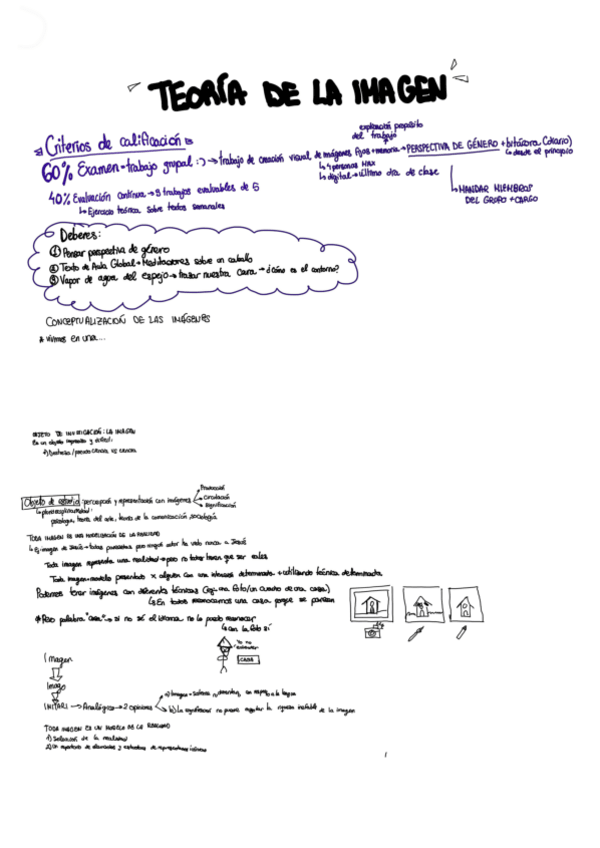 TEORÍA DE LA IMAGEN
Criterios de calificación
explicación propósito
del trabajo
60% Examen-trabajo grupal :) → trabajo de creación visual de imágenes fijas + memoria → PERSPECTIVA DE GÉNERO + bitácora (diario)
↳ desde el principio
↳ 4 personas MAX
↳ digital → último día de clase
↳ MANDAR MIEMBROS
DEL GRUPO + CARGO
40% Evaluación continua → 3 trabajos evaluables de 5
↳ Ejercicio teórico sobre textos semanales
Deberes:
① Pensar perspectiva de género
② Texto de Aula Global + Meditaciones sobre un caballo
③ Vapor de agua del espejo → trazar nuestra cara → ¿cómo es el contorno?
CONCEPTUALIZACIÓN DE LAS IMÁGENES
* Vivimos en una...
OBJETO DE INVESTIGACIÓN: LA IMAGEN
Es un objeto
Objeto de estudio: percepción y representación con imágenes
Producción
Circulación
Significación
↳ pluridisciplinariedad:
psicología, teoría del arte, teoría de la comunicación, sociología
TODA IMAGEN ES UNA MODELIZACIÓN DE LA REALIDAD
↳ Ej: imagen de Jesús → todas parecidas pero ningún autor ha visto nunca a Jesús
Toda imagen representa una realidad → pero no todas tienen que ser reales
Toda imagen = modelo presentado x alguien con unos intereses determinados + utilizando técnica determinada
Podemos tener imágenes con diferentes técnicas (ej: una foto/un cuadro de una casa)
↳ En todas reconocemos una casa porque se parecen
* Pero palabra "casa" → si no sé el idioma no la puedo reconocer
↳ con la foto sí
Yo no
CASA
Imagen
Imago
IMITARI → Analógico → 2 opiniones
a) Imagen = sistema
b) La significación no puede agotar la riqueza inefable de la imagen
TODA IMAGEN ES UN MODELO DE LA REALIDAD
1) Selección de la realidad
2) Un repertorio de elementos y estructura de representación